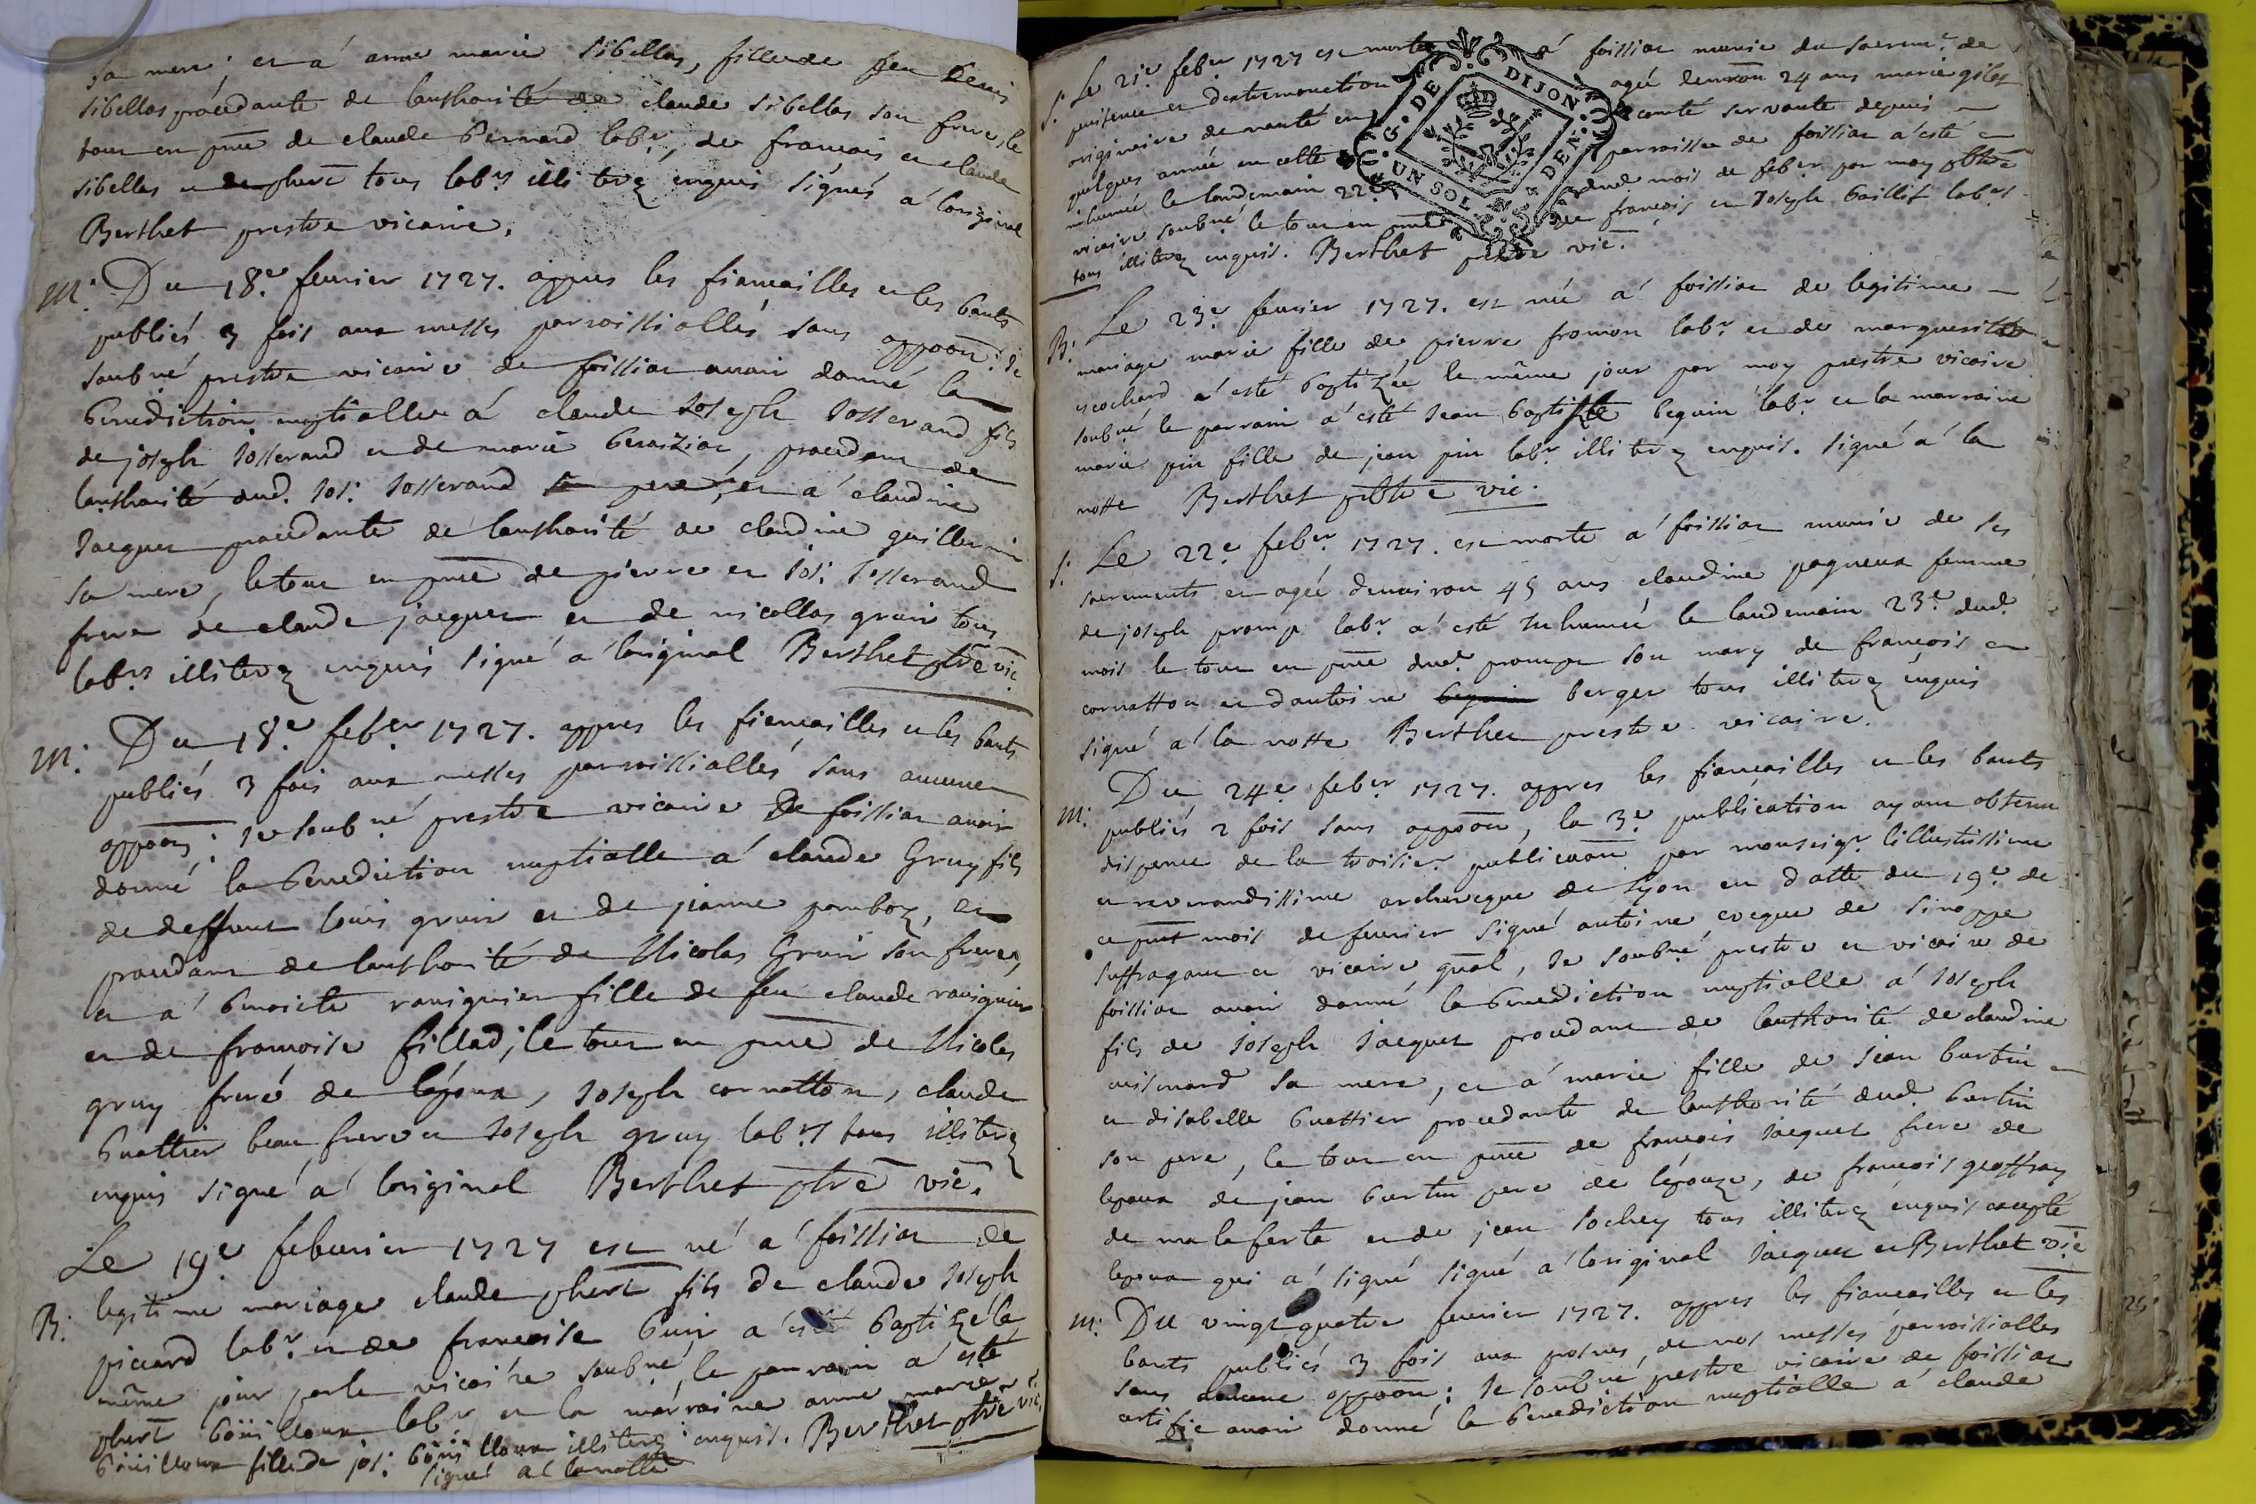 sa mere ; et a' anne marie sibellas, fille de feu denis
sibellas procedante de lauthorité de claude sibellas son frere, le
tout en pñce de claude bernard labr, de francois et claude
sibellas et de phert tous labrs illiterez enquis signés a' loriginal
Berthet prestre vicaire.
M: Du 18e feurier 1727. appres les fiancailles et les bants
publiés 3 fois aux messes parroissialles sans oppoõn: je
soubné prestre vicaire de foissiat auoir donné la
benediction nuptialle a' claude Joseph Josserand fils
de joseph Josserand et de marie procedant de
lauthorité dud. Jos: Josserand pere, et a' claudine
Jacquet procedante de lauthorité de claudine guillermin
sa mere, le tout en pñce de pierre et Jos: Josserand
frere de claude jacquet et de nicollas gruin tous
labrs illiterez enquis signé a' loriginal Berthet ptre vic.
M: Du 18e febvr 1727. appres les fiencailles et les bants
publiés 3 fois aux messes parroissialles sans aucune
oppoõn: Je soubné prestre vicaire De foissiat auoir
donné la benediction nuptialle a' claude Gruy fils
de deffunt louis gruin et de jeanne et
procedant de lauthorité de Nicolas Gruin son frere,
et a' benoiste rauignier fille de feu claude rauignier
et de francoise fillad, le tout en pñce de Nicolas
gruy frere de lépoux, Joseph cornatton, claude
buattier beau frere et Joseph gruy labrs tous illiterez
enquis signé a' loriginal Berthet ptre vic.
Le 19e feburier 1727 est né a' foissiat de
B: legitime mariage claude phert fils de claude Joseph
piccard labr et de francoise buir a' esté baptizé le
même jour par le vicaire soubné, le parrain a' esté
phert boüilloux labr et la marraine anne marie
boüilloux fille de jos: boüilloux illiterez enquis. Berthet ptre vic.
signé a' la notte
S: Le 21e febvr 1727 est morte a' foissiat munie du sacremt de
penitence et dextremonction agée denuiron 24 ans marie
originaire de en comté seruante depuis
quelques année en cette parroisse de foissiat a' esté
inhumée le landemain 22e dud. mois de febvr par moy pbtre
vicaire soubné le tout en pñce de francois et Joseph baillif labrs
tous illiterez enquis. Berthet prstre vic.
B: Le 23e feurier 1727. est née a' foissiat de legitime
mariage marie fille de pierre fromon labr et de marguerite
escochard a' esté baptizée le même jour par moy prestre vicaire
soubné le parrain a' esté Jean baptiste beguin labr et la marraine
marie pin fille de jean pin labr illiterez enquis. signé a' la
notte Berthet pbtre vic.
S: Le 22e febvr 1727. est morte a' foissiat munie de ses
sacrements et agée denuiron 45 ans claudine pagneux femme
de joseph promp labr a' esté Inhumée le landemain 23e dud.
mois le tout en pñce dud. promp son mary de francois
cornatton et dantoine berger tous illiterez enquis
signé a' la notte Berthet prestre vicaire.
M: Du 24e febvr 1727. appres les fiancailles et les bants
publiés 2 fois sans oppoõn, la 3e publication ayant obtenu
dispence de la troisier publicaõn par monseigr lillustrissime
et reuerandissime archeueque de lyon en datte du 19e de
ce pñt mois de feurier signé antoine eueque de sinoppe
suffragant et vicaire gñal, Je soubné prestre et vicaire de
foissiat auoir donné la benediction nuptialle a' Joseph
fils de Joseph Jacquet procedant de lauthorité de claudine
sa mere, et a' marie fille de jean burtin
et disabelle buattier procedante de lauthorité dud. burtin
son pere, le tout en pñce de francois Jacquet frere de
lepoux de jean burtin pere de lépouze, de francois geoffray
de malaferta et de jean Sochey tous illiterez énquis excepté
lepoux qui a' signé signé a' loriginal Jacquet et Berthet vic
M: Du vingt quatre feurier 1727. appres les fiancailles et les
bants publiés 3 fois aux prosnes, de nos messes parroissialles
sans aucune oppoõn: Je soubné prestre vicaire de foissiat
certifie auoir donné la benediction nuptialle a' claude
G. DE DIJON
UN SOL 4 DEN.